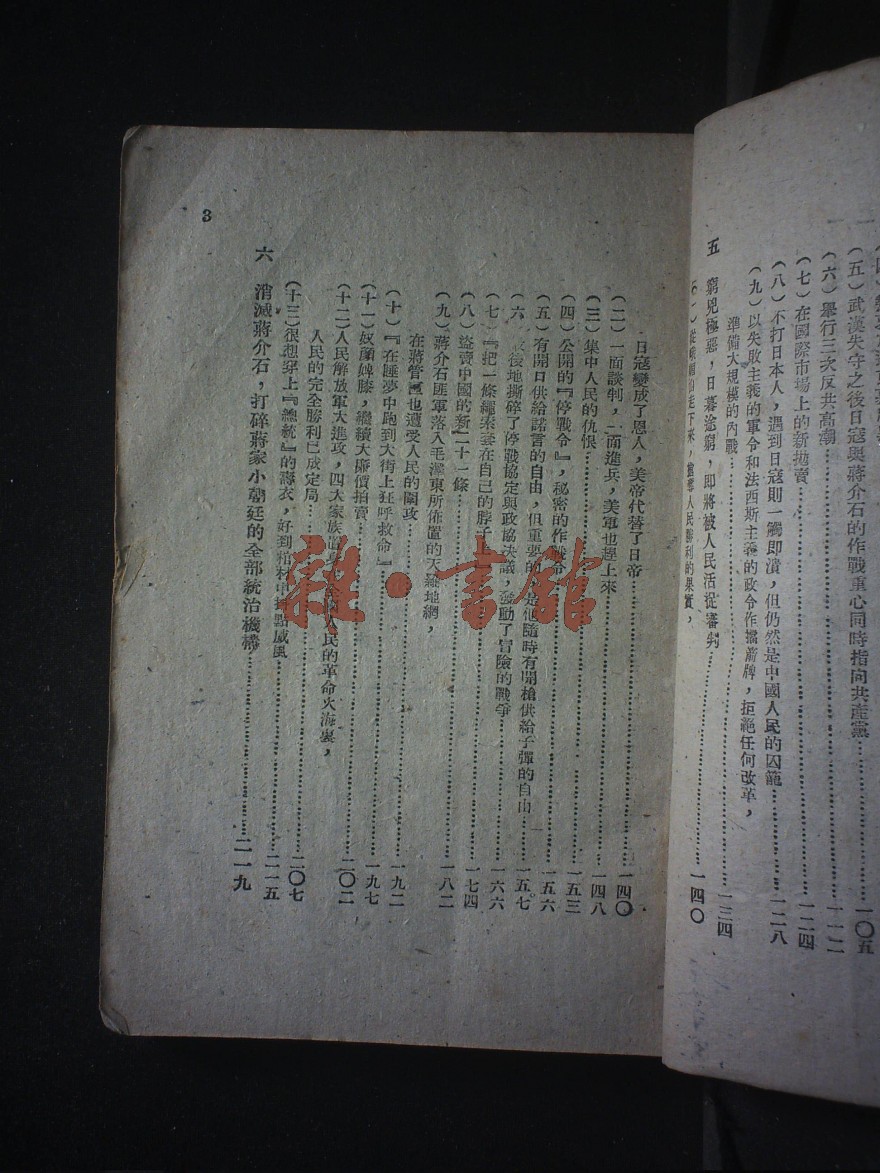 （五）武漢失守之後日寇與蔣介石的作戰重心同時指向共產黨…………一〇五
（六）舉行三次反共高潮…………一一二
（七）在國際市場上的新拋賣…………一二四
（八）不打日本人，遇到日寇則一觸即潰，但仍然是中國人民的囚籠…………一二八
（九）以失敗主義的軍令和法西斯主義的政令作擋箭牌，拒絕任何改革，
準備大規模的內戰…………一三四
五　窮兇極惡，日暮途窮，即將被人民活捉審判…………一四〇
下來，人民勝利的果實，
日寇變成了恩人，美帝代替了日帝…………一四〇
（二）一面談判，一面進兵，美軍也趕上來…………一四八
（三）集中人民的仇恨…………一五三
（四）公開的『停戰令』，秘密的作戰令…………一五六
（五）有開口供給諾言的自由，但重要的是他隨時有開槍供給子彈的自由…………一五七
（六）最後地撕碎了停戰協定與政協決議，發動了冒險的戰爭…………一六六
（七）『把一條繩索套在自己的脖子上』…………一七四
（八）盜賣中國的新『二十一條』…………一八二
（九）蔣介石匪軍落入毛澤東所佈置的天羅地網，
在蔣管區也遭受人民的圍攻…………一九二
（十）『在匪夢中跑到大街上狂呼救命』…………一九七
（十一）奴顏婢膝，繼續大廉價拍賣…………二〇二
（十二）人民解放軍大進攻，四大家族置身全國人民的革命火海裏，
人民的完全勝利已成定局…………二〇七
（十三）很想穿上『總統』的壽衣，好到棺材中抖點威風…………二一五
六　消滅蔣介石，打碎蔣家小朝廷的全部統治機構…………二一九
3
雜·書館